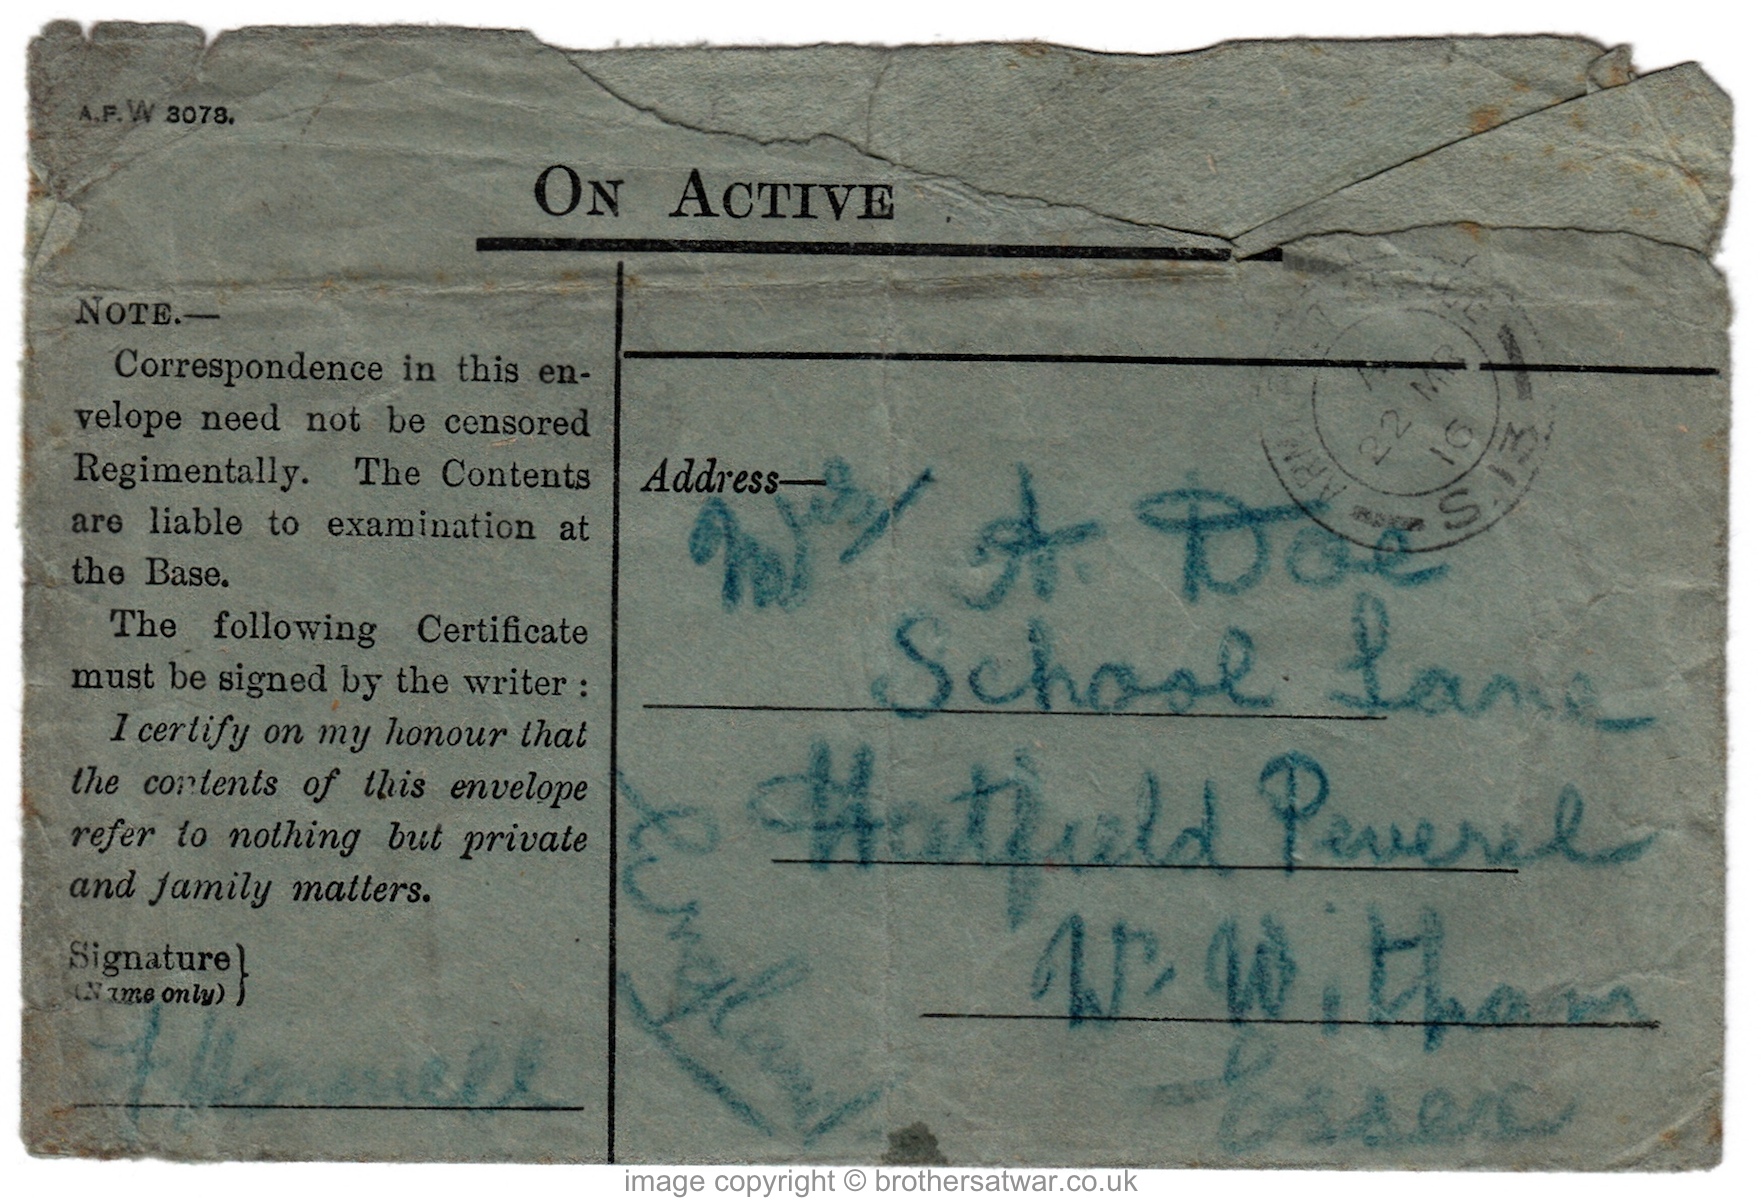 A.F.W 3078.
ON ACTIVE
NOTE.—
Correspondence in this en-
velope need not be censored
Regimentally. The Contents
are liable to examination at
the Base.
The following Certificate
must be signed by the writer :
I certify on my honour that
the contents of this envelope
refer to nothing but private
and family matters.
Signature}
(Name only)
ARMY
22 MR
16
S.13
Address—
A. Doe
School Lane
Hatfield Peverel
Nr Witham
Essex
England
image copyright © brothersatwar.co.uk